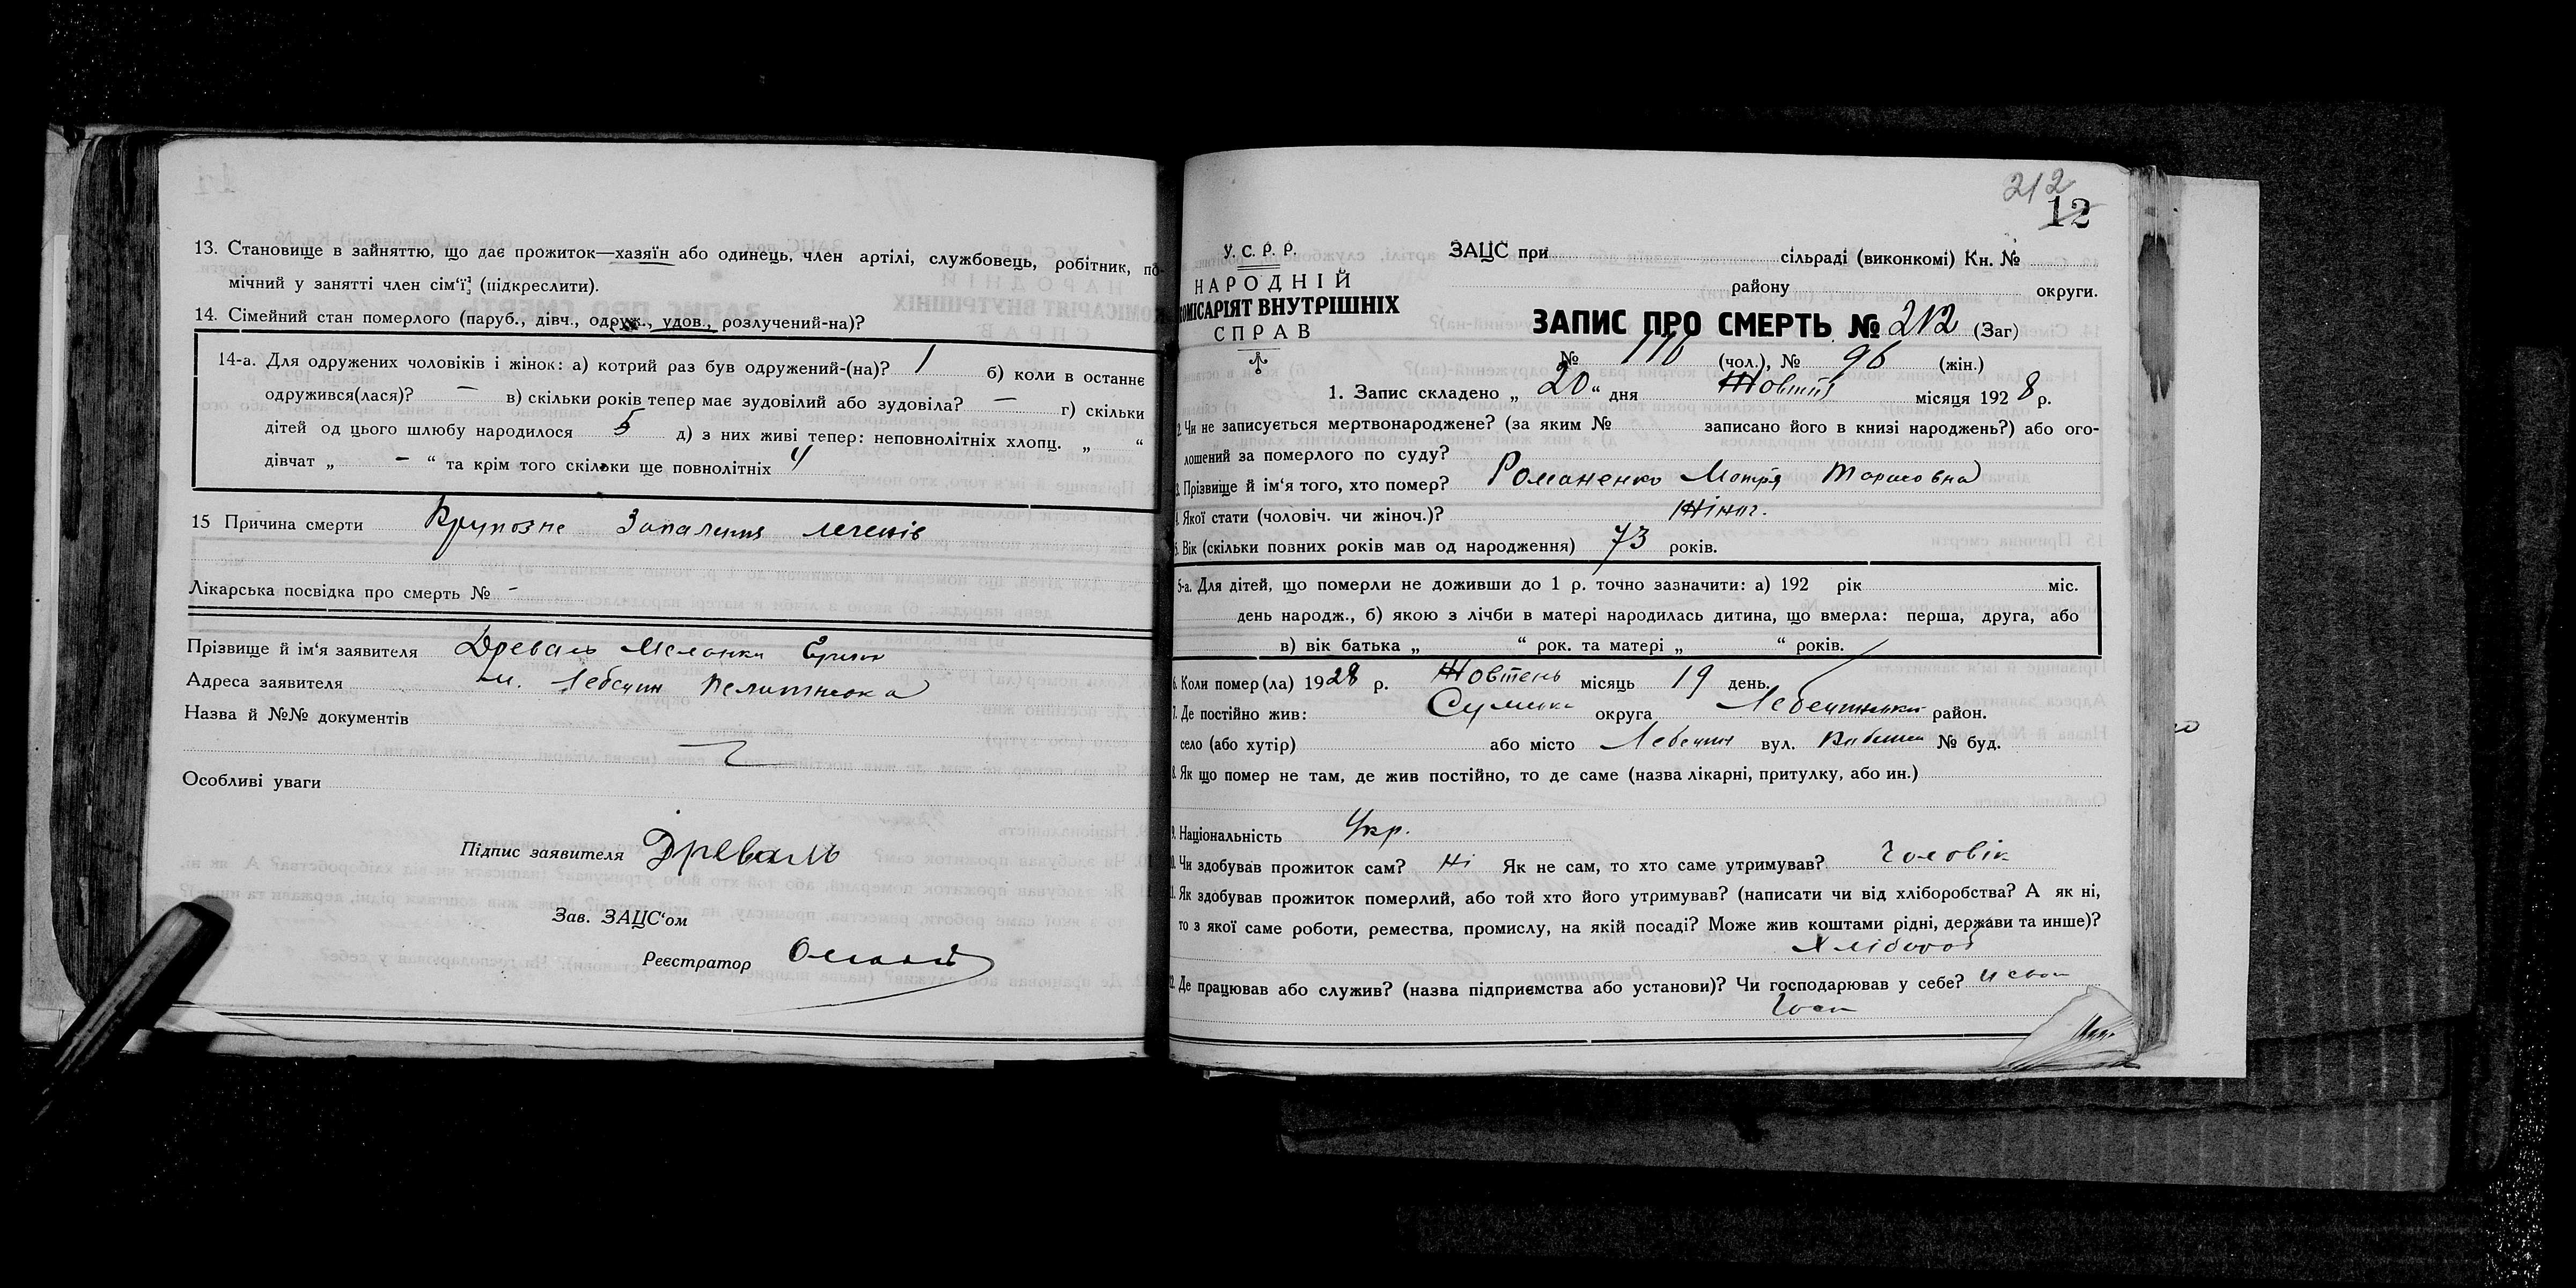 13. Становище в зайняттю, що дає прожиток—хазяїн або одинець, член артілі, службовець, робітник, по-
мічний у занятті член сім'ї (підкреслити).
14. Сімейний стан померлого (паруб., дівч., одруж., удов., розлучений-на)?
14-а. Для одружених чоловіків і жінок: а) котрий раз був одружений-(на)? 1 б) коли в останнє
одружився(лася)? — в) скільки років тепер має зудовілий або зудовіла? — г) скільки
дітей од цього шлюбу народилося 5 д) з них живі тепер: неповнолітніх хлопц. „ “
дівчат „ - “ та крім того скільки ще повнолітніх 4
15 Причина смерти Крупозне Запалення легенів
Лікарська посвідка про смерть № -
Прізвище й ім'я заявителя Древаль Меланки
Адреса заявителя м. Лебедин
Назва й №№ документів
Особливі уваги
Підпис заявителя Древаль
Зав. ЗАЦС'ом
Реєстратор
212
12
У. С. Р. Р.
НАРОДНІЙ
КОМІСАРІЯТ ВНУТРІШНІХ
СПРАВ
ЗАЦС при сільраді (виконкомі) Кн. №
району округи.
ЗАПИС ПРО СМЕРТЬ № 212 (Заг)
№ 116 (чол.), № 96 (жін.)
1. Запис складено „ 20 “ дня Жовтня місяця 1928 р.
2. Чи не записується мертвонароджене? (за яким № записано його в книзі народжень?) або ого-
лошений за померлого по суду?
3. Прізвище й ім'я того, хто помер? Романенко Мотря Тарасовна
4. Якої стати (чоловіч. чи жіноч.)? Жіноч.
5. Вік (скільки повних років мав од народження) 73 років.
5-а. Для дітей, що померли не доживши до 1 р. точно зазначити: а) 192 рік міс.
день народж., б) якою з лічби в матері народилась дитина, що вмерла: перша, друга, або
в) вік батька „ “ рок. та матері „ “ років.
6. Коли помер(ла) 1928 р. Жовтень місяць 19 день.
7. Де постійно жив: Сумська округа Лебединський район.
село (або хутір) або місто Лебедин вул. № буд.
8. Як що помер не там, де жив постійно, то де саме (назва лікарні, притулку, або ин.)
9. Національність Укр.
10. Чи здобував прожиток сам? Ні Як не сам, то хто саме утримував? Чоловік
11. Як здобував прожиток померлий, або той хто його утримував? (написати чи від хліборобства? А як ні,
то з якої саме роботи, ремества, промислу, на якій посаді? Може жив коштами рідні, держави та инше)?
Хлібороб
12. Де працював або служив? (назва підприємства або установи)? Чи господарював у себе? У свои
Госп